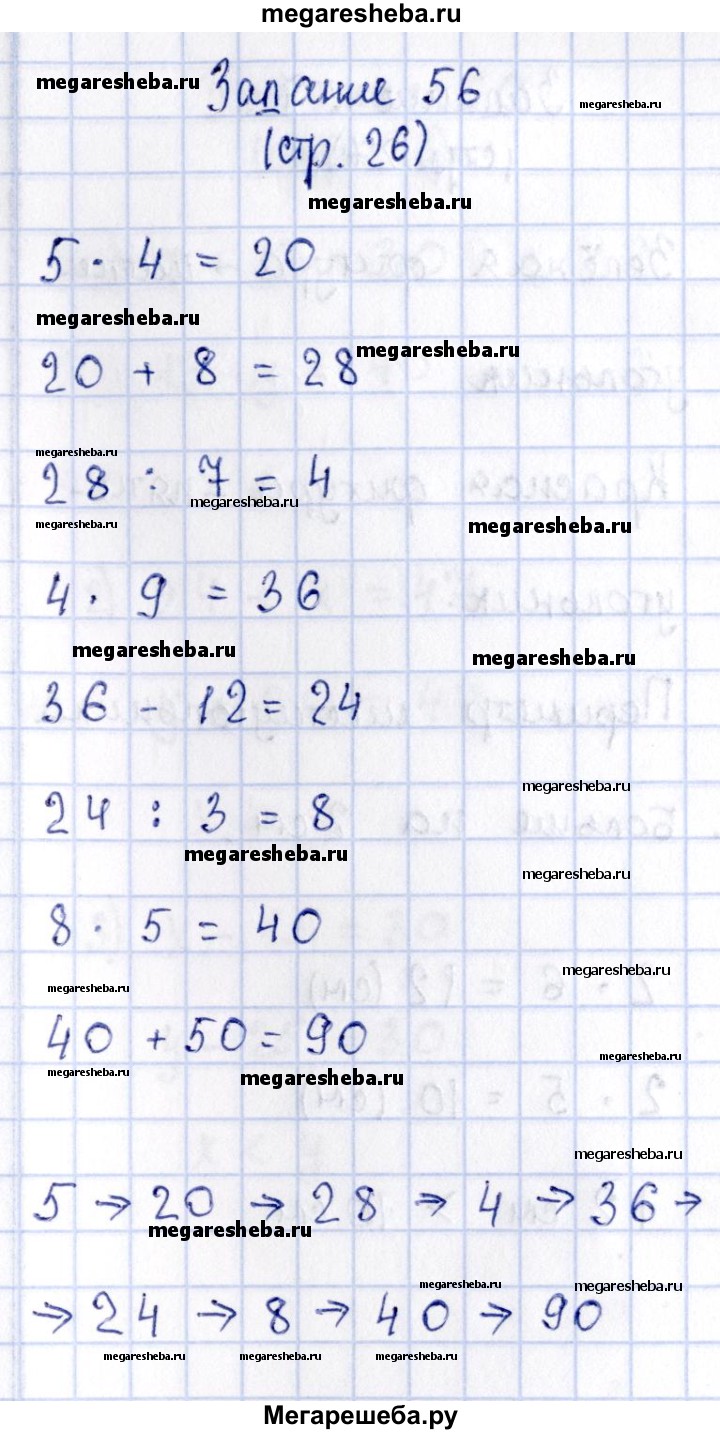 megaresheba.ru
megaresheba.ru Задание 56 megaresheba.ru
(стр. 26)
megaresheba.ru
5 · 4 = 20
megaresheba.ru
megaresheba.ru
20 + 8 = 28
megaresheba.ru
28 : 7 = 4
megaresheba.ru
megaresheba.ru megaresheba.ru
4 · 9 = 36
megaresheba.ru megaresheba.ru
36 - 12 = 24
megaresheba.ru
24 : 3 = 8
megaresheba.ru
megaresheba.ru
8 · 5 = 40
megaresheba.ru
megaresheba.ru
40 + 50 = 90
megaresheba.ru
megaresheba.ru megaresheba.ru
megaresheba.ru
5 → 20 → 28 → 4 → 36 →
megaresheba.ru
megaresheba.ru megaresheba.ru
→ 24 → 8 → 40 → 90
megaresheba.ru megaresheba.ru megaresheba.ru
Мегарешеба.ру